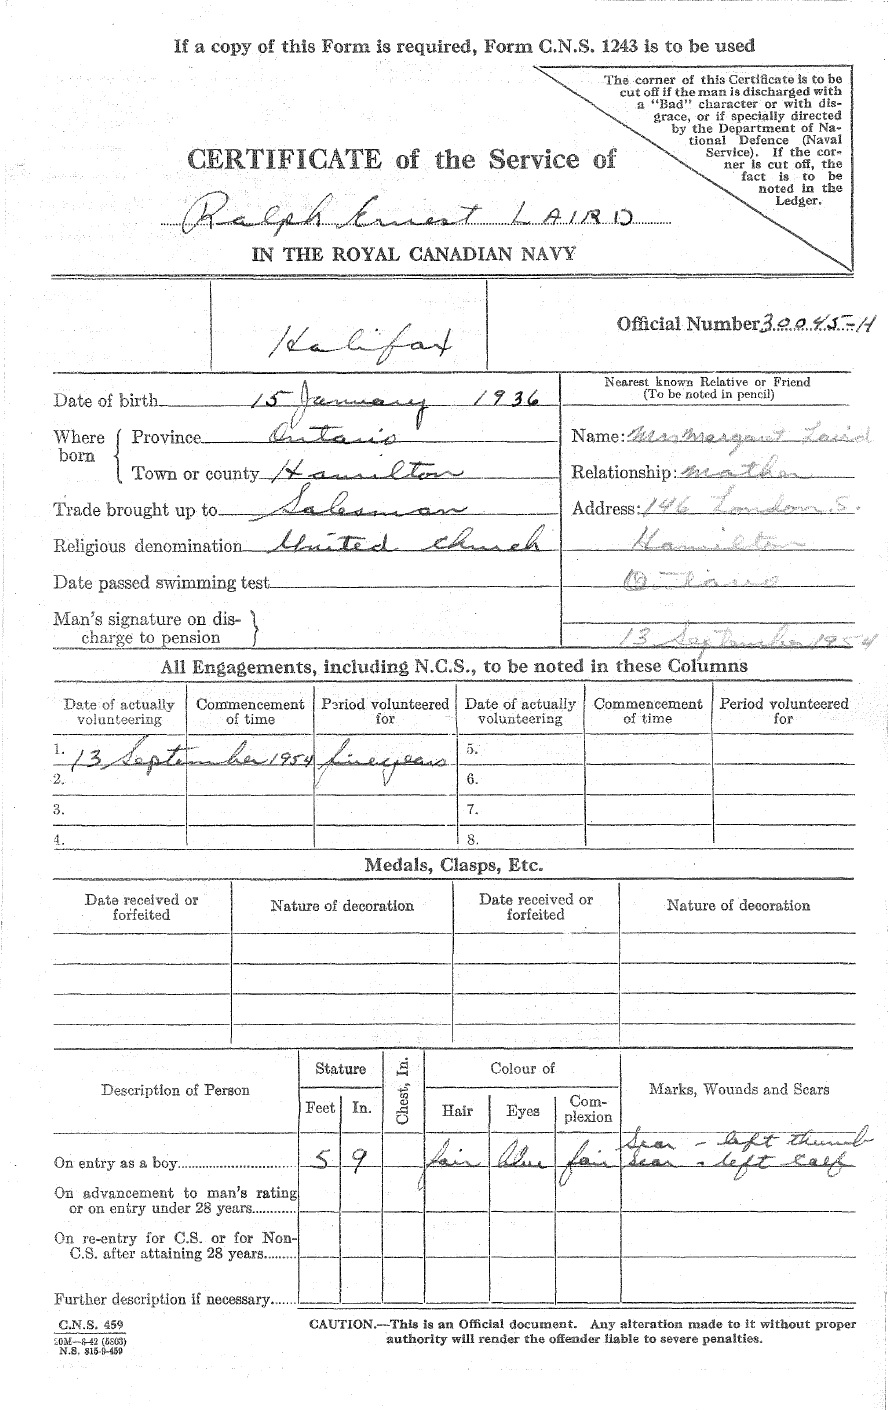 If a copy of this Form is required, Form C.N.S. 1243 is to be used
The corner of this Certificate is to be
cut off if the man is discharged with
a "Bad" character or with dis-
grace, or if specially directed
by the Department of Na-
tional Defence (Naval
Service). If the cor-
ner is cut off, the
fact is to be
noted in the
Ledger.
CERTIFICATE of the Service of
Ralph Ernest LAIRD
IN THE ROYAL CANADIAN NAVY
Halifax
Official Number 30045-H
Date of birth 15 January 1936
Where born
Province Ontario
Town or county Hamilton
Trade brought up to Salesman
Religious denomination United Church
Date passed swimming test
Man's signature on dis-
charge to pension
Nearest known Relative or Friend
(To be noted in pencil)
Name: Mrs Margaret Laird
Relationship: Mother
Address: 146 London S.
Hamilton
Ontario
13 September 1954
All Engagements, including N.C.S., to be noted in these Columns
Date of actually volunteering
Commencement of time
Period volunteered for
Date of actually volunteering
Commencement of time
Period volunteered for
1. 13 September 1954 five years
2.
3.
4.
5.
6.
7.
8.
Medals, Clasps, Etc.
Date received or forfeited
Nature of decoration
Date received or forfeited
Nature of decoration
Description of Person
Stature
Feet
In.
Chest, In.
Colour of
Hair
Eyes
Com-
plexion
Marks, Wounds and Scars
On entry as a boy 5 9 fair blue fair
Scar - left thumb
Scar - left calf
On advancement to man's rating
or on entry under 28 years
On re-entry for C.S. or for Non-
C.S. after attaining 28 years
Further description if necessary
C.N.S. 459
20M—8-42 (5803)
N.S. 815-9-459
CAUTION.—This is an Official document. Any alteration made to it without proper
authority will render the offender liable to severe penalties.